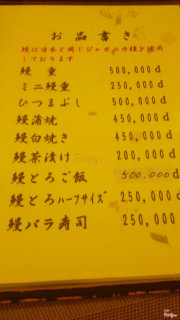 お品書き
鰻は日本と同じジャポニカ種を使用
しております
鰻 重 500,000 đ
ミニ鰻重 250,000 đ
ひつまぶし 500,000 đ
鰻蒲焼 450,000 đ
鰻白焼き 450,000 đ
鰻茶漬け 200,000 đ
鰻とろご飯 500.000 đ
鰻とろハーフサイズ 250,000 đ
鰻バラ寿司 250,000
Foody